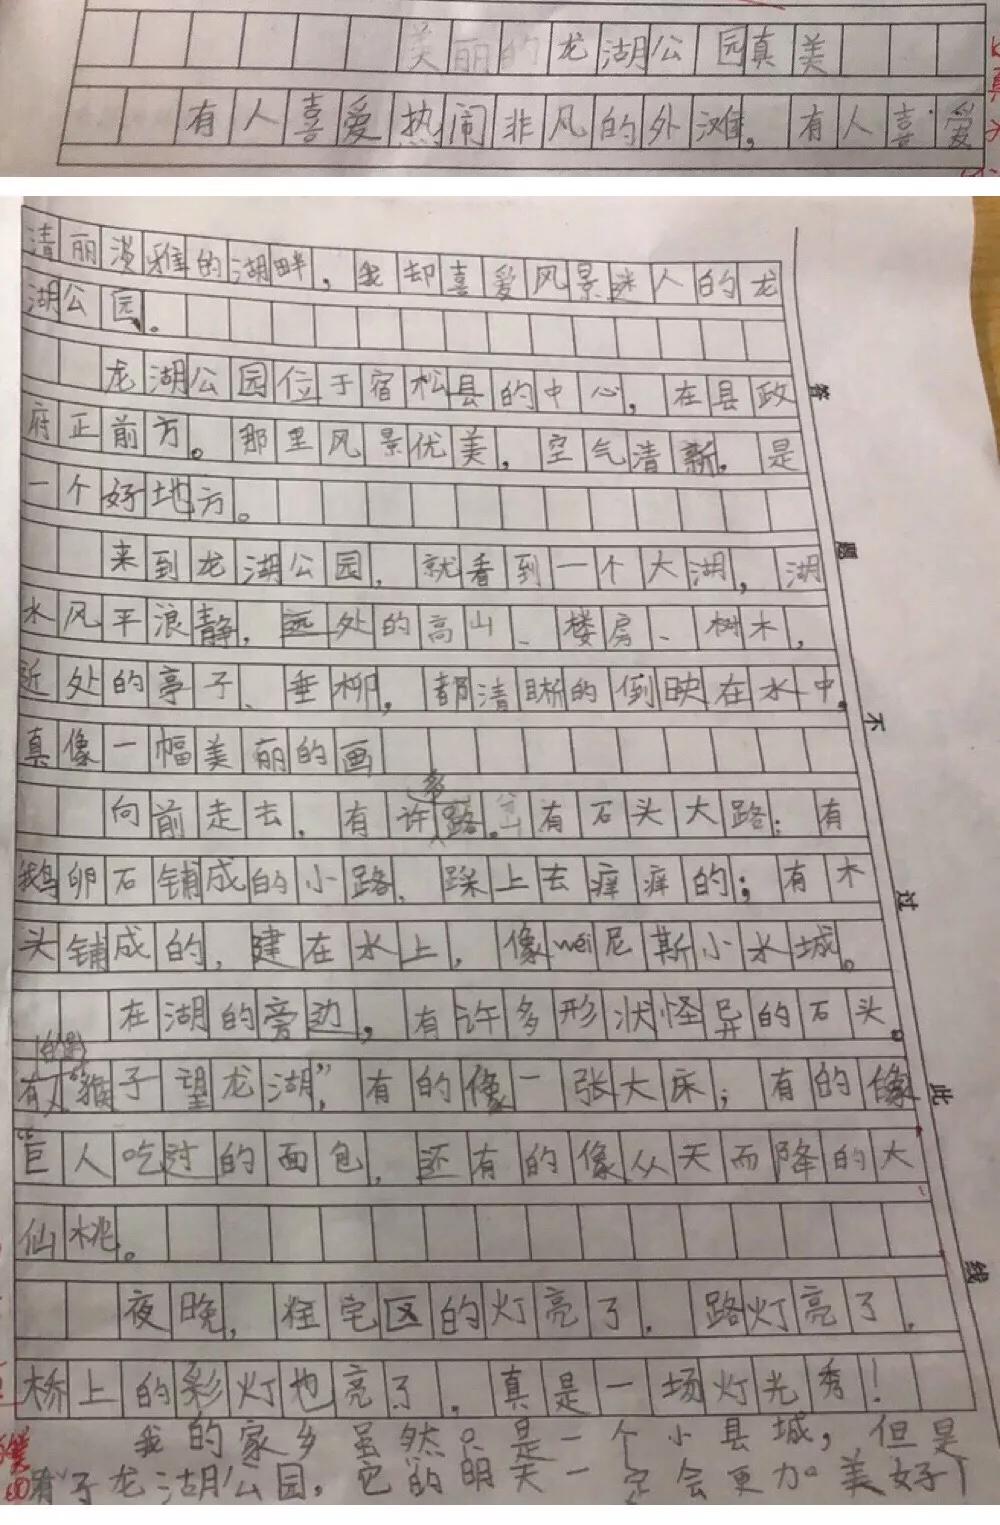 美丽的龙湖公园真美
有人喜爱热闹非风的外滩，有人喜爱
清丽淡雅的湖畔，我却喜爱风景迷人的龙
湖公园。
龙湖公园位于宿松县的中心，在县政
府正前方。那里风景优美，空气清新，是
一个好地方。
来到龙湖公园，就看到一个大湖，湖
水风平浪静，远处的高山、楼房、树木，
近处的亭子、垂柳，都清晰的倒映在水中，
真像一幅美丽的画
向前走去，有许多路。有石头大路；有
鹅卵石铺成的小路，踩上去痒痒的；有木
头铺成的，建在水上，像wēi尼斯小水城。
在湖的旁边，有许多形状怪异的石头。
有“猴子望龙湖”，有的像一张大床；有的像
巨人吃过的面包，还有的像从天而降的大
仙桃。
夜晚，住宅区的灯亮了，路灯亮了，
桥上的彩灯也亮了，真是一场灯光秀！
我的家乡虽然只是一个小县城，但是
有了龙湖公园，它的明天一定会更加美好！
答
题
不
过
此
线